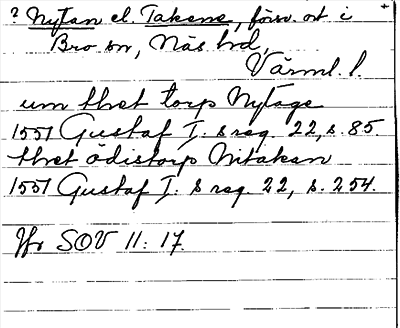 ? Nytan el. Takene, förv. ort i
Bro sn, Näs hd,
Värml. l.
um thet torp Nytage
1551 Gustaf I:s reg. 22, s. 85.
thet ödistorp Nitaken
1551 Gustaf I:s reg. 22, s. 254.
Jfr SOV 11:17.